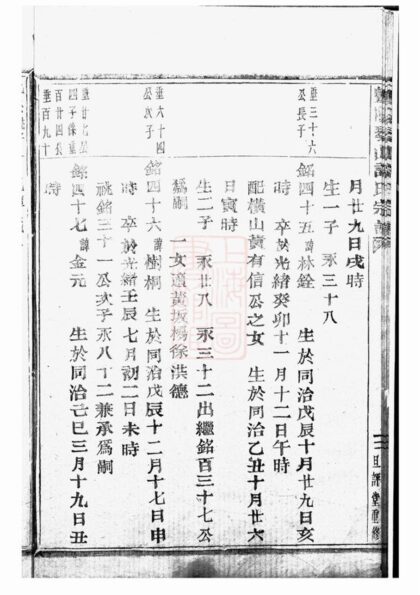 月廿九日戌時
生一子　永三十八
垂三十六
公長子
銘四十五　諱林銓　生於同治戊辰十月廿九日亥
時　卒於光緒癸卯十一月十二日午時
配橫山黃有信公之女　生於同治乙丑十月廿六
日寅時
生二子　永廿八　永三十二出繼銘百三十七公
爲嗣　一女適黃坂楊徐洪德
垂六十四
公次子
銘四十六　諱樹桐　生於同治戊辰十二月十七日申
時　卒於光緒壬辰七月初二日未時
祧銘三十一公次子永八十二兼承爲嗣
垂廿七公
四子係垂
百廿四長
垂百九十
銘四十七　諱金元　生於同治己巳三月十九日丑
時
且評堂重修